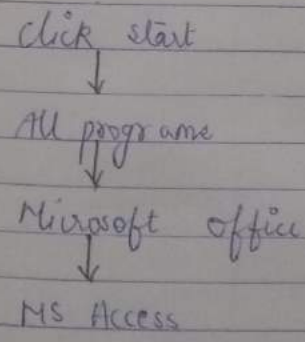 click start
↓
All programe
↓
Microsoft office
↓
MS Access